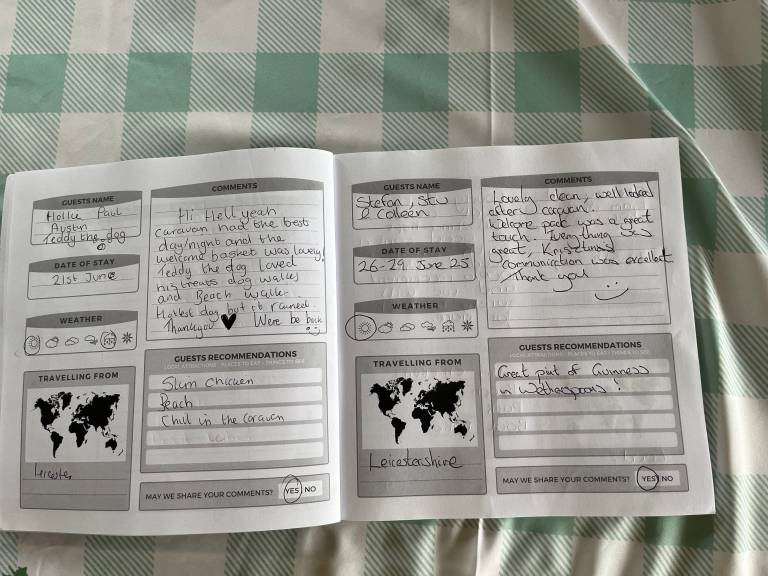 GUESTS NAME
Hollie Paul
Austin
Teddy the dog
DATE OF STAY
21st June
WEATHER
TRAVELLING FROM
Leicester
COMMENTS
Hi Hell yeah
caravan had the best
day/night and the
welcome basket was lovely!
Teddy the dog loved
his treats dog walks
and Beach walk.
Hottest day but it rained.
Thankyou ♥ Were be back
GUESTS RECOMMENDATIONS
LOCAL ATTRACTIONS - PLACES TO EAT - THINGS TO SEE
Slum Chicken
Beach
Chill in the caravan
MAY WE SHARE YOUR COMMENTS? YES NO
GUESTS NAME
Stefan, Stu
& Colleen
DATE OF STAY
26-29 June 25
WEATHER
TRAVELLING FROM
Leicestershire
COMMENTS
Lovely clean, well looked
after caravan.
Welcome pack was a great
touch. Everything was
great,
communication was excellent
Thank you
GUESTS RECOMMENDATIONS
LOCAL ATTRACTIONS - PLACES TO EAT - THINGS TO SEE
Great pint of Guinness
in Wetherspoons!
MAY WE SHARE YOUR COMMENTS? YES NO